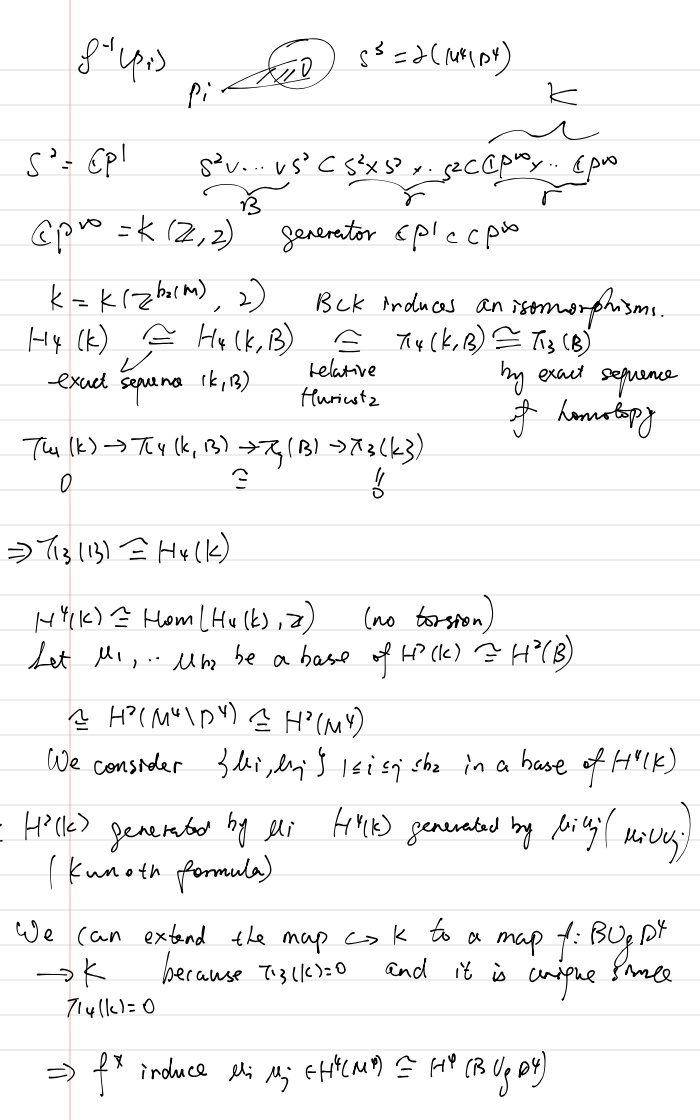 f⁻¹(pi)
pi D S³ = ∂(M⁴\D⁴)
K
S² = CP¹ S²∨...∨S² ⊂ S²×S²×..S² ⊂ CP^∞×..CP^∞
B r r
CP^∞ = K(Z,2) generator CP¹ ⊂ CP^∞
K = K(Z^{b₂(M)}, 2) B⊂K induces an isomorphisms.
H₄(K) ≅ H₄(K,B) ≅ π₄(K,B) ≅ π₃(B)
exact sequence (K,B) relative by exact sequence
of homotopy
π₄(K) → π₄(K,B) → π₃(B) → π₃(K)
0 ≅ 0
⇒ π₃(B) ≅ H₄(K)
H⁴(K) ≅ Hom(H₄(K), Z) (no torsion)
Let μ₁, .. μb₂ be a base of H²(K) ≅ H²(B)
≅ H²(M⁴\D⁴) ≅ H²(M⁴)
We consider {μi, μj} 1≤i≤j≤b₂ in a base of H⁴(K)
H²(K) generated by μi H⁴(K) generated by μiμj (μi∪μj)
(Kunoth formula)
We can extend the map ↪ K to a map f: B∪gD⁴
→ K because π₃(K)=0 and it is unique since
π₄(K)=0
⇒ f* induce μi μj ∈ H⁴(M⁴) ≅ H⁴(B∪gD⁴)